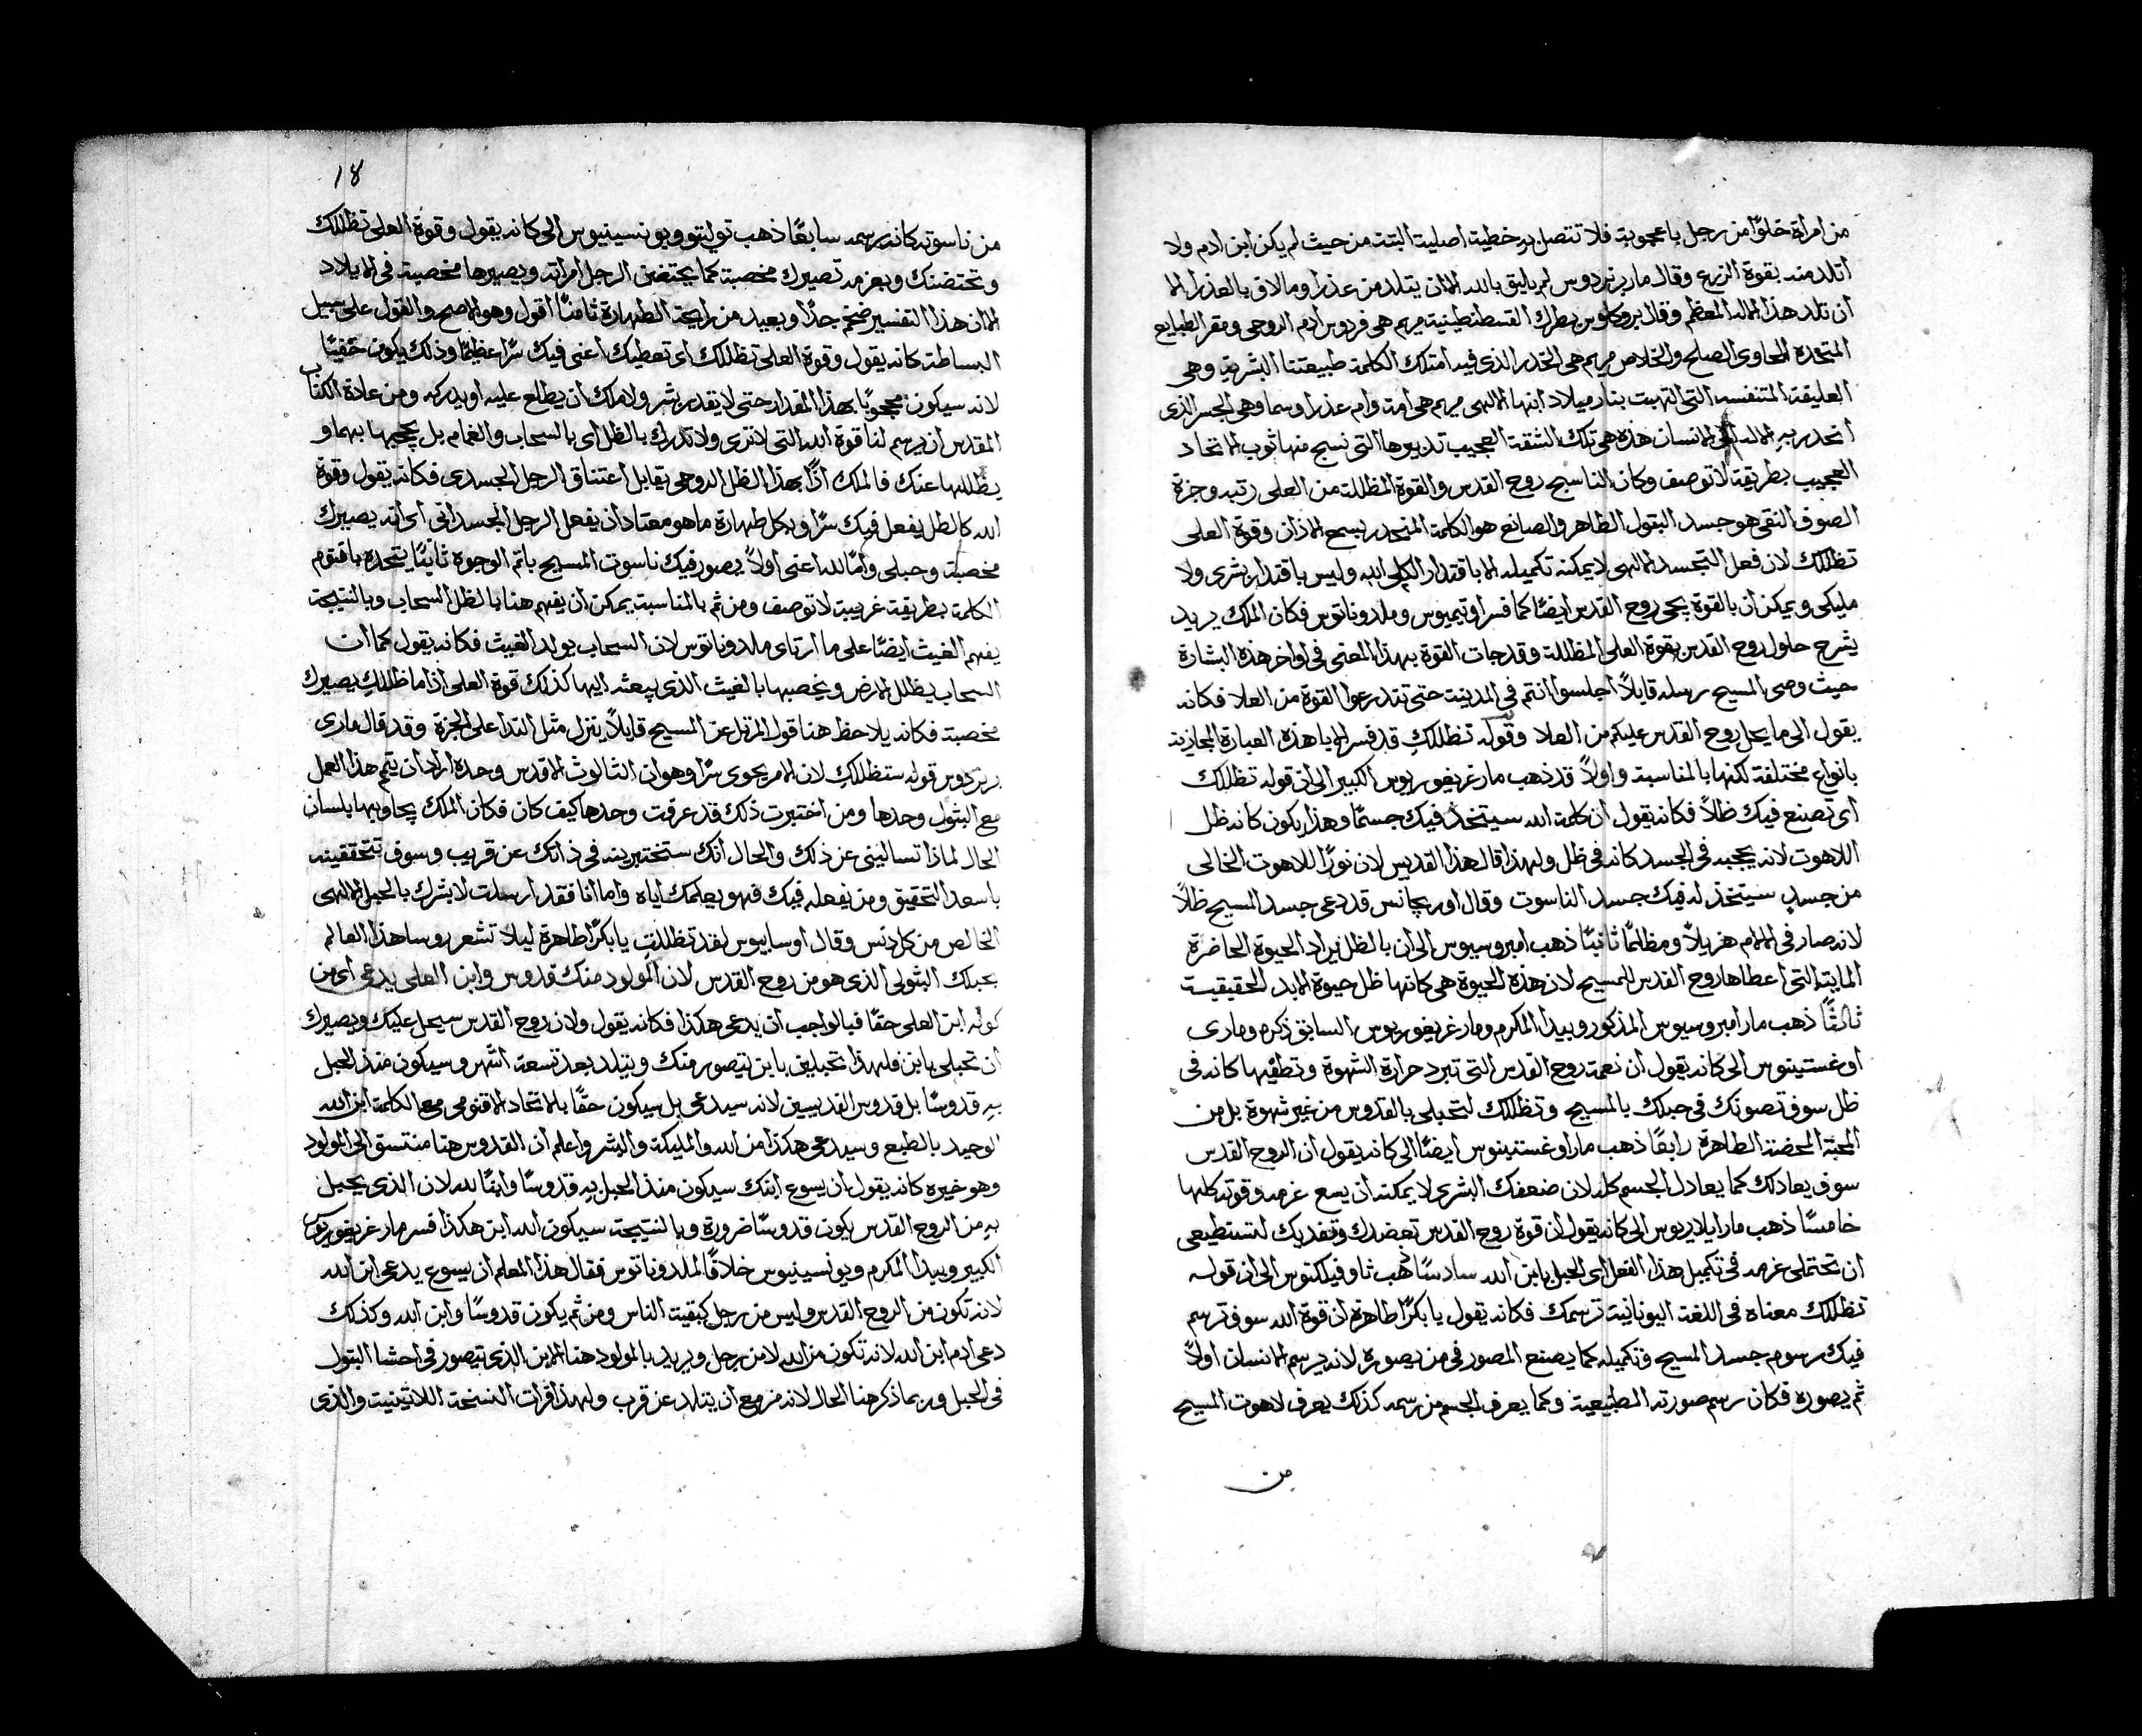 من امراة خلوًا من رجل باعجوبة فلا تتصل به خطية اصلية البتة من حيث لم يكن ابن ادم ولا
اتلد منه بقوة الزرع وقال مار برنردوس لم يليق بالله الا ان يتلد من عذرا وما لاق بالعذرا الا
ان تلد هذا الاله المعظم وقال بروكلوس بطرك القسطنطينية مريم هي فردوس ادم الروحي ومقر الطبايع
المتحده الحاوي الصلح والخلاص مريم هي الخدر الذي فيه امتلك الكلمة طبيعتنا البشرية وهي
العليقة المتنفسه التي التهبت بنار ميلاد ابنها الالهي مريم هي امة وام عذرا وسما وهي الجسر الذي
انحدر به الاله الى الانسان هذه هي تلك الشقة العجيب تدبيرها التي نسج منها ثوب الاتحاد
العجيب بطريقة لا توصف وكان الناسج روح القدس والقوة المظللة من العلى رتبه وجزة
الصوف النقي هو جسد البتول الطاهر والصانع هو الكلمة المنحدر بسمع الاذان وقوة العلى
تظللك لان فعل التجسد الالهي لا يمكنه تكميله الا باقتدار الكلي لله وليس باقتدار بشري ولا
مليكي ويمكن ان بالقوة يحى روح القدس ايضًا كما فسر اوتيميوس وملدوناتوس فكان الملك يريد
يشرح حلول روح القدس بقوة العلى المظللة وقد جات القوة بهذا المعنى في اواخر هذه البشارة
حيث وصى المسيح رسله قايلاً اجلسوا انتم في المدينة حتى تتدرعوا القوة من العلا فكانه
يقول الى ما يحل روح القدس عليكم من العلا وقوله تظللك قد فسر الابا هذه العبارة المجازية
بانواع مختلفة لكنها بالمناسبة واولاً قد ذهب مار غريغوريوس الكبير الى ان قوله تظللك
اي تصنع فيك ظلاً فكانه يقول ان كلمة الله سيتخذ فيك جسمًا وهذا يكون كانه ظل
اللاهوت لانه يحجبه في الجسد كانه في ظل ولهذا قال هذا القديس لان نورًا اللاهوت الخالي
من جسد سيتخذ له فيك جسد الناسوت وقال اوريجانس قد دعى جسد المسيح ظلاً
لانه صار في الالام هزيلاً ومظلمًا ثانيًا ذهب امبروسيوس الى ان بالظل يراد الحيوة الحاضرة
المايتة التي اعطاها روح القدس للمسيح لان هذه الحيوة هي كانها ظل حيوة الابد الحقيقية
ثالثًا ذهب مار امبروسيوس المذكور وبيدا المكرم ومار غريغوريوس السابق ذكره وماري
اوغستينوس الى كانه يقول ان نعمة روح القدس التي تبرد حرارة الشهوة وتطفيها كانه في
ظل سوف تصونك في حبلك بالمسيح وتظللك لتحبلي بالقدوس من غير شهوة بل من
المحبة المحضة الطاهرة رابعًا ذهب مار اوغستينوس ايضًا الى كانه يقول ان الروح القدس
سوف يعادلك كما يعادل الجسم كله لان ضعفك البشري لا يمكنه ان يسع عزمه وقوته كلها
خامسًا ذهب مار ايلاريوس الى كانه يقول ان قوة روح القدس تعضدك وتفديك لتستطيعي
ان تحتملي عزمه في تكميل هذا الفعل اي الحبل بابن الله سادسًا ذهب ثاوفيلكتوس الى ان قوله
تظللك معناه في اللغة اليونانية ترسمك فكانه يقول يا بكرًا طاهرة ان قوة الله سوف ترسم
فيك رسوم جسد المسيح وتكميله كما يصنع المصور في من يصوره لانه يرسم الانسان اولاً
ثم يصوره فكان رسم صورته الطبيعية وكما يعرف الجسم من رسمه كذلك يعرف لاهوت المسيح
من
١٨
من ناسوته كانه رسمه سابعًا ذهب توليتو ويونسينيوس الى كانه يقول وقوة العلى تظللك
وتحتضنك وبعزمه تصيرك مخصبة كما يحتضن الرجل امراته ويصيرها مخصبة في الايلاد
الا ان هذا التفسير ضخم جدًا وبعيد من رايحة الطهارة ثامنًا اقول وهو الاصح والقول على سبيل
البساطة كانه يقول وقوة العلى تظللك اي تعطيك اعني فيك سرًا عظيمًا وذلك يكون خفيًا
لانه سيكون محجوبًا بهذا المقدار حتى لا يقدر بشر ولا ملاك ان يطلع عليه او يدركه ومن عادة الكتاب
المقدس ان يرسم لنا قوة الله التي لا ترى ولا تدرك بالظل اي بالسحاب والغمام بل يحجبها بهما و
يظللها عنك فالملك اذًا بهذا الظل الروحي يقابل اعتناق الرجل الجسدي فكانه يقول وقوة
الله كالظل يفعل فيك سرًا وبكل طهارة ما هو معتاد ان يفعل الرجل الجسداني اي انه يصيرك
مخصبة وحبلى وامًا لله اعني اولاً يصور فيك ناسوت المسيح باتم الوجوه ثانيًا يتحده باقنوم
الكلمة بطريقة غريبة لا توصف ومن ثم بالمناسبة يمكن ان يفهم هنا بالظل السحاب وبالنتيجة
يفهم الغيث ايضًا على ما ارتاى ملدوناتوس لان السحاب يولد الغيث فكانه يقول كما ان
السحاب يظلل الارض ويخصبها بالغيث الذي يبعثه اليها كذلك قوة العلى اذا ما ظللك يصيرك
مخصبة فكانه يلاحظ هنا قول المرتل عن المسيح قايلاً ينزل مثل الندا على الجزة وقد قال ماري
برنردوس قوله ستظللك لان الامر يحوى سرًا وهو ان الثالوث الاقدس وحده اراد ان يتم هذا العمل
مع البتول وحدها ومن اختبرت ذلك قد عرفت وحدها كيف كان فكان الملك يجاوبها بلسان
الحال لماذا تساليني عن ذلك والحال انك ستختبرينه في ذاتك عن قريب وسوف تتحققينه
باسعد التحقيق ومن يفعله فيك فهو يعلمك اياه واما انا فقد ارسلت لابشرك بالحبل الالهي
الخالص من كل دنس وقال اوسابيوس لقد تظللت يا بكرًا طاهرة ليلا تشعر روسا هذا العالم
بحبلك البتولي الذي هو من روح القدس لان المولود منك قدوس وابن العلى يدعى اي من
كونه ابن العلى حقًا فبالواجب ان يدعى هكذا فكانه يقول ولان روح القدس سيحل عليك ويصيرك
ان تحبلي بابن فلهذا تحبلين بابن يتصور منك ويتلد بعد تسعة اشهر وسيكون منذ الحبل
به قدوسًا بل قدوس القديسين لانه سيدعى بل سيكون حقًا بالاتحاد الاقنومي مع الكلمة ابن الله
الوحيد بالطبع وسيدعى هكذا من الله والمليكة والبشر واعلم ان القدوس هنا منتسق الى المولود
وهو خبره كانه يقول ان يسوع ابنك سيكون منذ الحبل به قدوسًا وابنًا لله لان الذي يحبل
به من الروح القدس يكون قدوسًا ضرورة وبالنتيجة سيكون الله ابن هكذا فسر مار غريغوريوس
الكبير وبيدا المكرم ويونسينيوس خلافًا لملدوناتوس فقال هذا المعلم ان يسوع يدعى ابن الله
لانه تكون من الروح القدس وليس من رجل كبقية الناس ومن ثم يكون قدوسًا وابن الله وكذلك
دعى ادم ابن الله لانه تكون من الله لا من رجل ويريد بالمولود هنا الابن الذي تيصور في احشا البتول
في الحبل وربما ذكر هنا الحال لانه مزمع ان يتلد عن قرب ولهذا قرات النسخة اللاتينية والذي